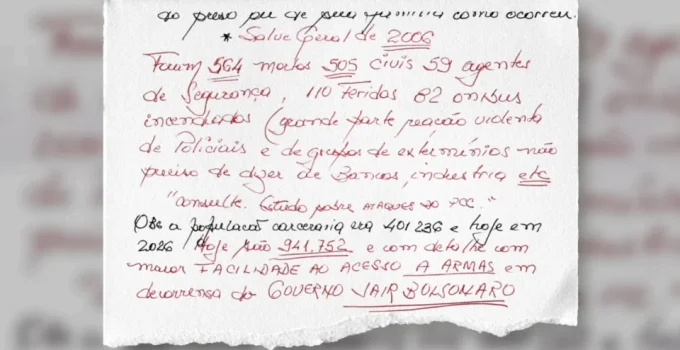 do preso ou de sua família como ocorreu.
* Salve Geral de 2006
Foram 564 mortos 505 civis 59 agentes
de Segurança, 110 Feridos 82 onibus
incendiados (grande parte reação violenta
de Policiais e de grupos de extermínios não
preciso de dizer de Bancos, industria etc
"consulte. Estudo sobre ATAQUES DO PCC."
OBS a população carceraria era 401 236 e hoje em
2026 Hoje são 941.752 e com detalhe com
maior FACILIDADE AO ACESSO A ARMAS em
decorrensa do GOVERNO JAIR BOLSONARO